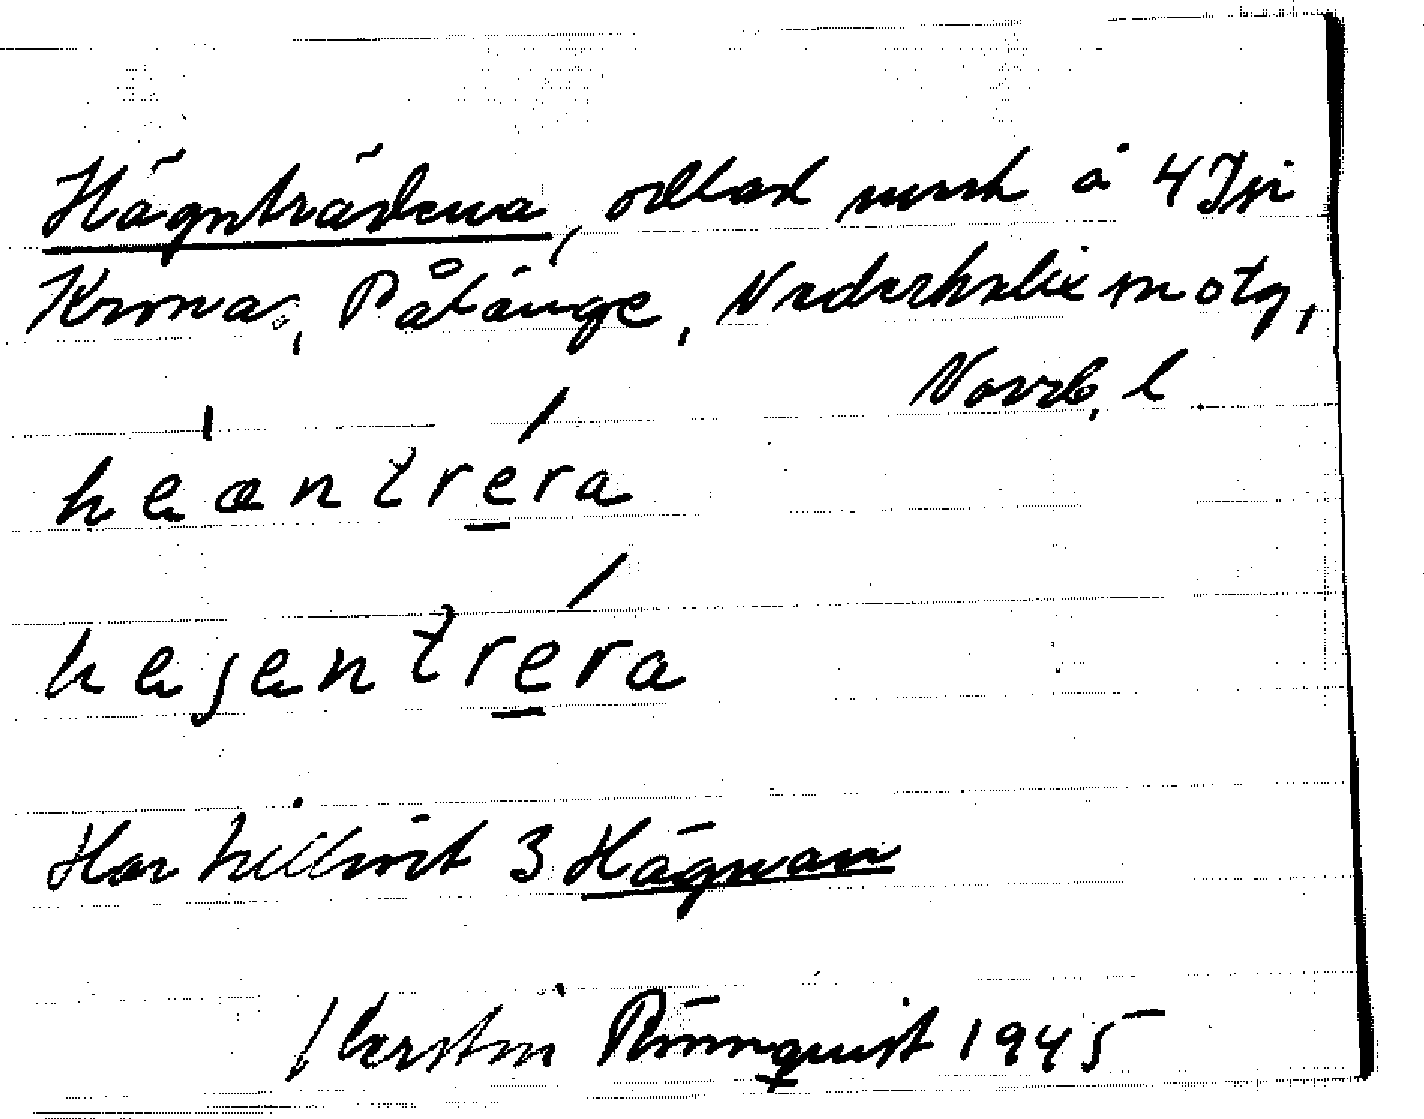 Hägnträdena, odlad mark å 4 Jpi
Kronas, Påläuge, Nederkalix sn o tg,
Norrb. l.
heäntréra
hejentréra
Har tillhört 3 Hägnan
Kerstin Rönnquist 1945